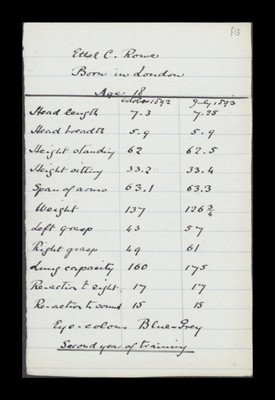 Ethel C. Rowe
Born in London
Age 18
October 1892 July, 1893
Head length 7.3 7.25
Head breadth 5.9 5.9
Height standing 62 62.5
Height sitting 33.2 33.4
Span of arms 63.1 63.3
Weight 137 126 3/4
Left grasp 43 57
Right grasp 49 61
Lung capacity 160 175
Re-action to sight. 17 17
Re-action to sound 15 15
Eye-colour Blue-Grey
Second year of training